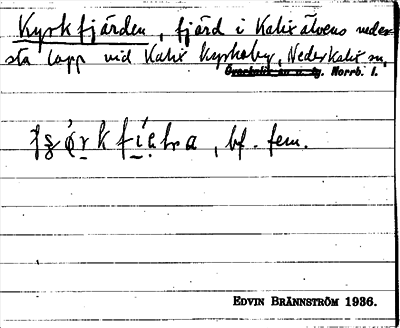 Kyrkfjärden, fjärd i Kalixälvens neder-
sta lopp vid Kalix kyrkoby, Nederkalix sn,
Överkalix sn o. tg. Norrb. l.
, bf. fem.
EDVIN BRÄNNSTRÖM 1936.